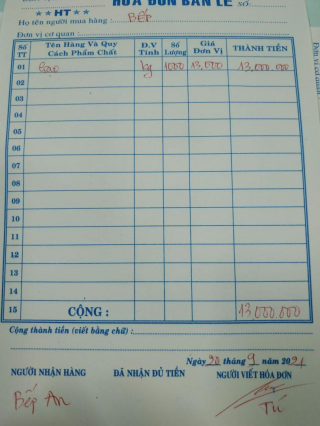 HÓA ĐƠN BÁN LẺ SỐ
★★HT★★
Họ tên người mua hàng : BẾP
Đơn vị cơ quan :
Số TT Tên Hàng Và Quy Cách Phẩm Chất Đ.V Tính Số Lượng Giá Đơn Vị THÀNH TIỀN
01 Gạo kg 1000 13,000 13,000.000
02
03
04
05
06
07
08
09
10
11
12
13
14
15 CỘNG : 13,000.000
Cộng thành tiền (viết bằng chữ) :
Ngày 20 tháng 9 năm 2021
NGƯỜI NHẬN HÀNG ĐÃ NHẬN ĐỦ TIỀN NGƯỜI VIẾT HÓA ĐƠN
Bếp An Tú
Đơn vị cơ quan